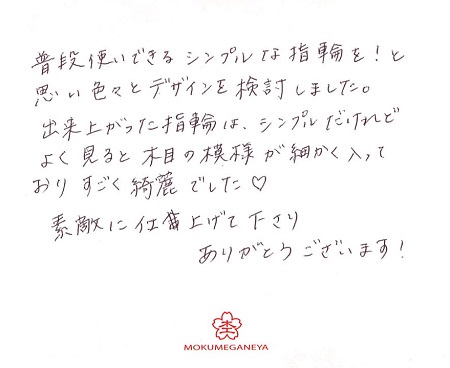 普段使いできるシンプルな指輪を！と
思い色々とデザインを検討しました。
出来上がった指輪は、シンプルだけれど
よく見ると木目の模様が細かく入って
おりすごく綺麗でした♡
素敵に仕上げて下さり
ありがとうございます！
MOKUMEGANEYA